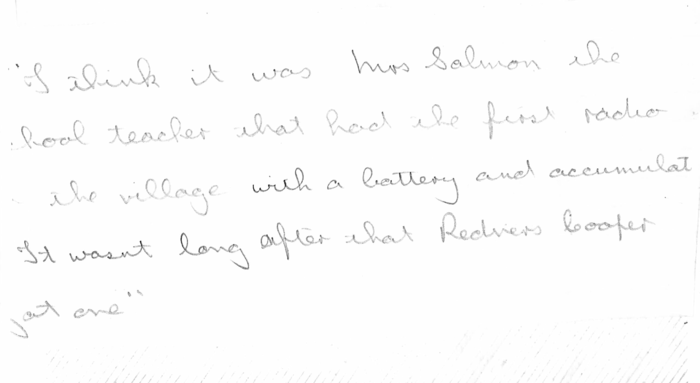 "I think it was Mrs Salmon the
hool teacher that had the first radio
the village with a battery and accumulat
It wasnt long after that Redvers Cooper
got one"